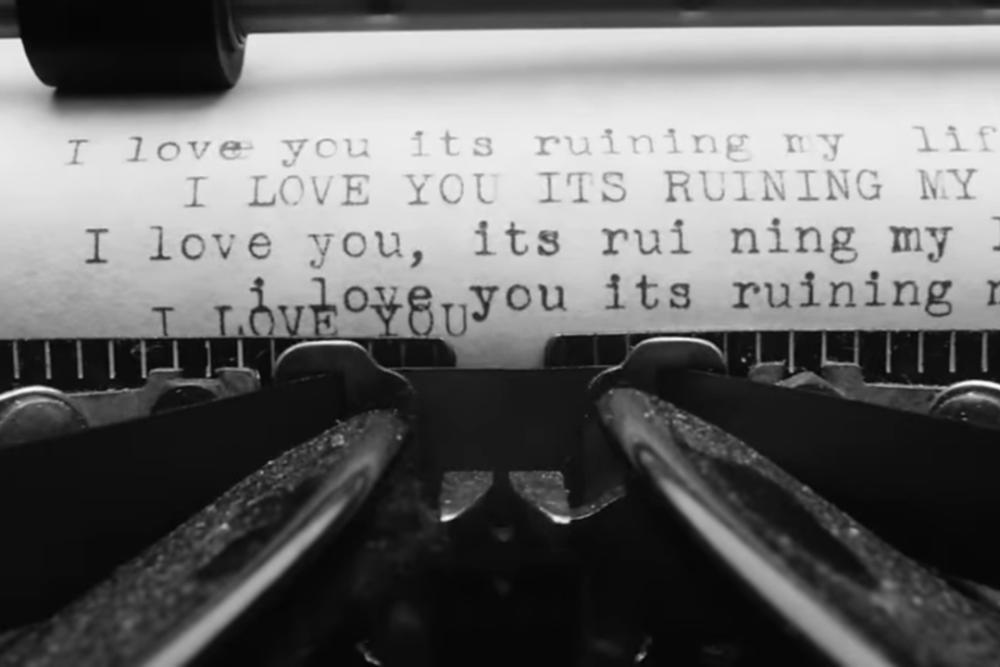 I love you its ruining my lif
I LOVE YOU ITS RUINING MY
I love you, its rui ning my l
i love you its ruining m
I LOVE YOU